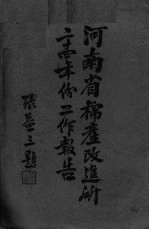 河南省棉產改進所
二十四年份工作報告
張岳三題